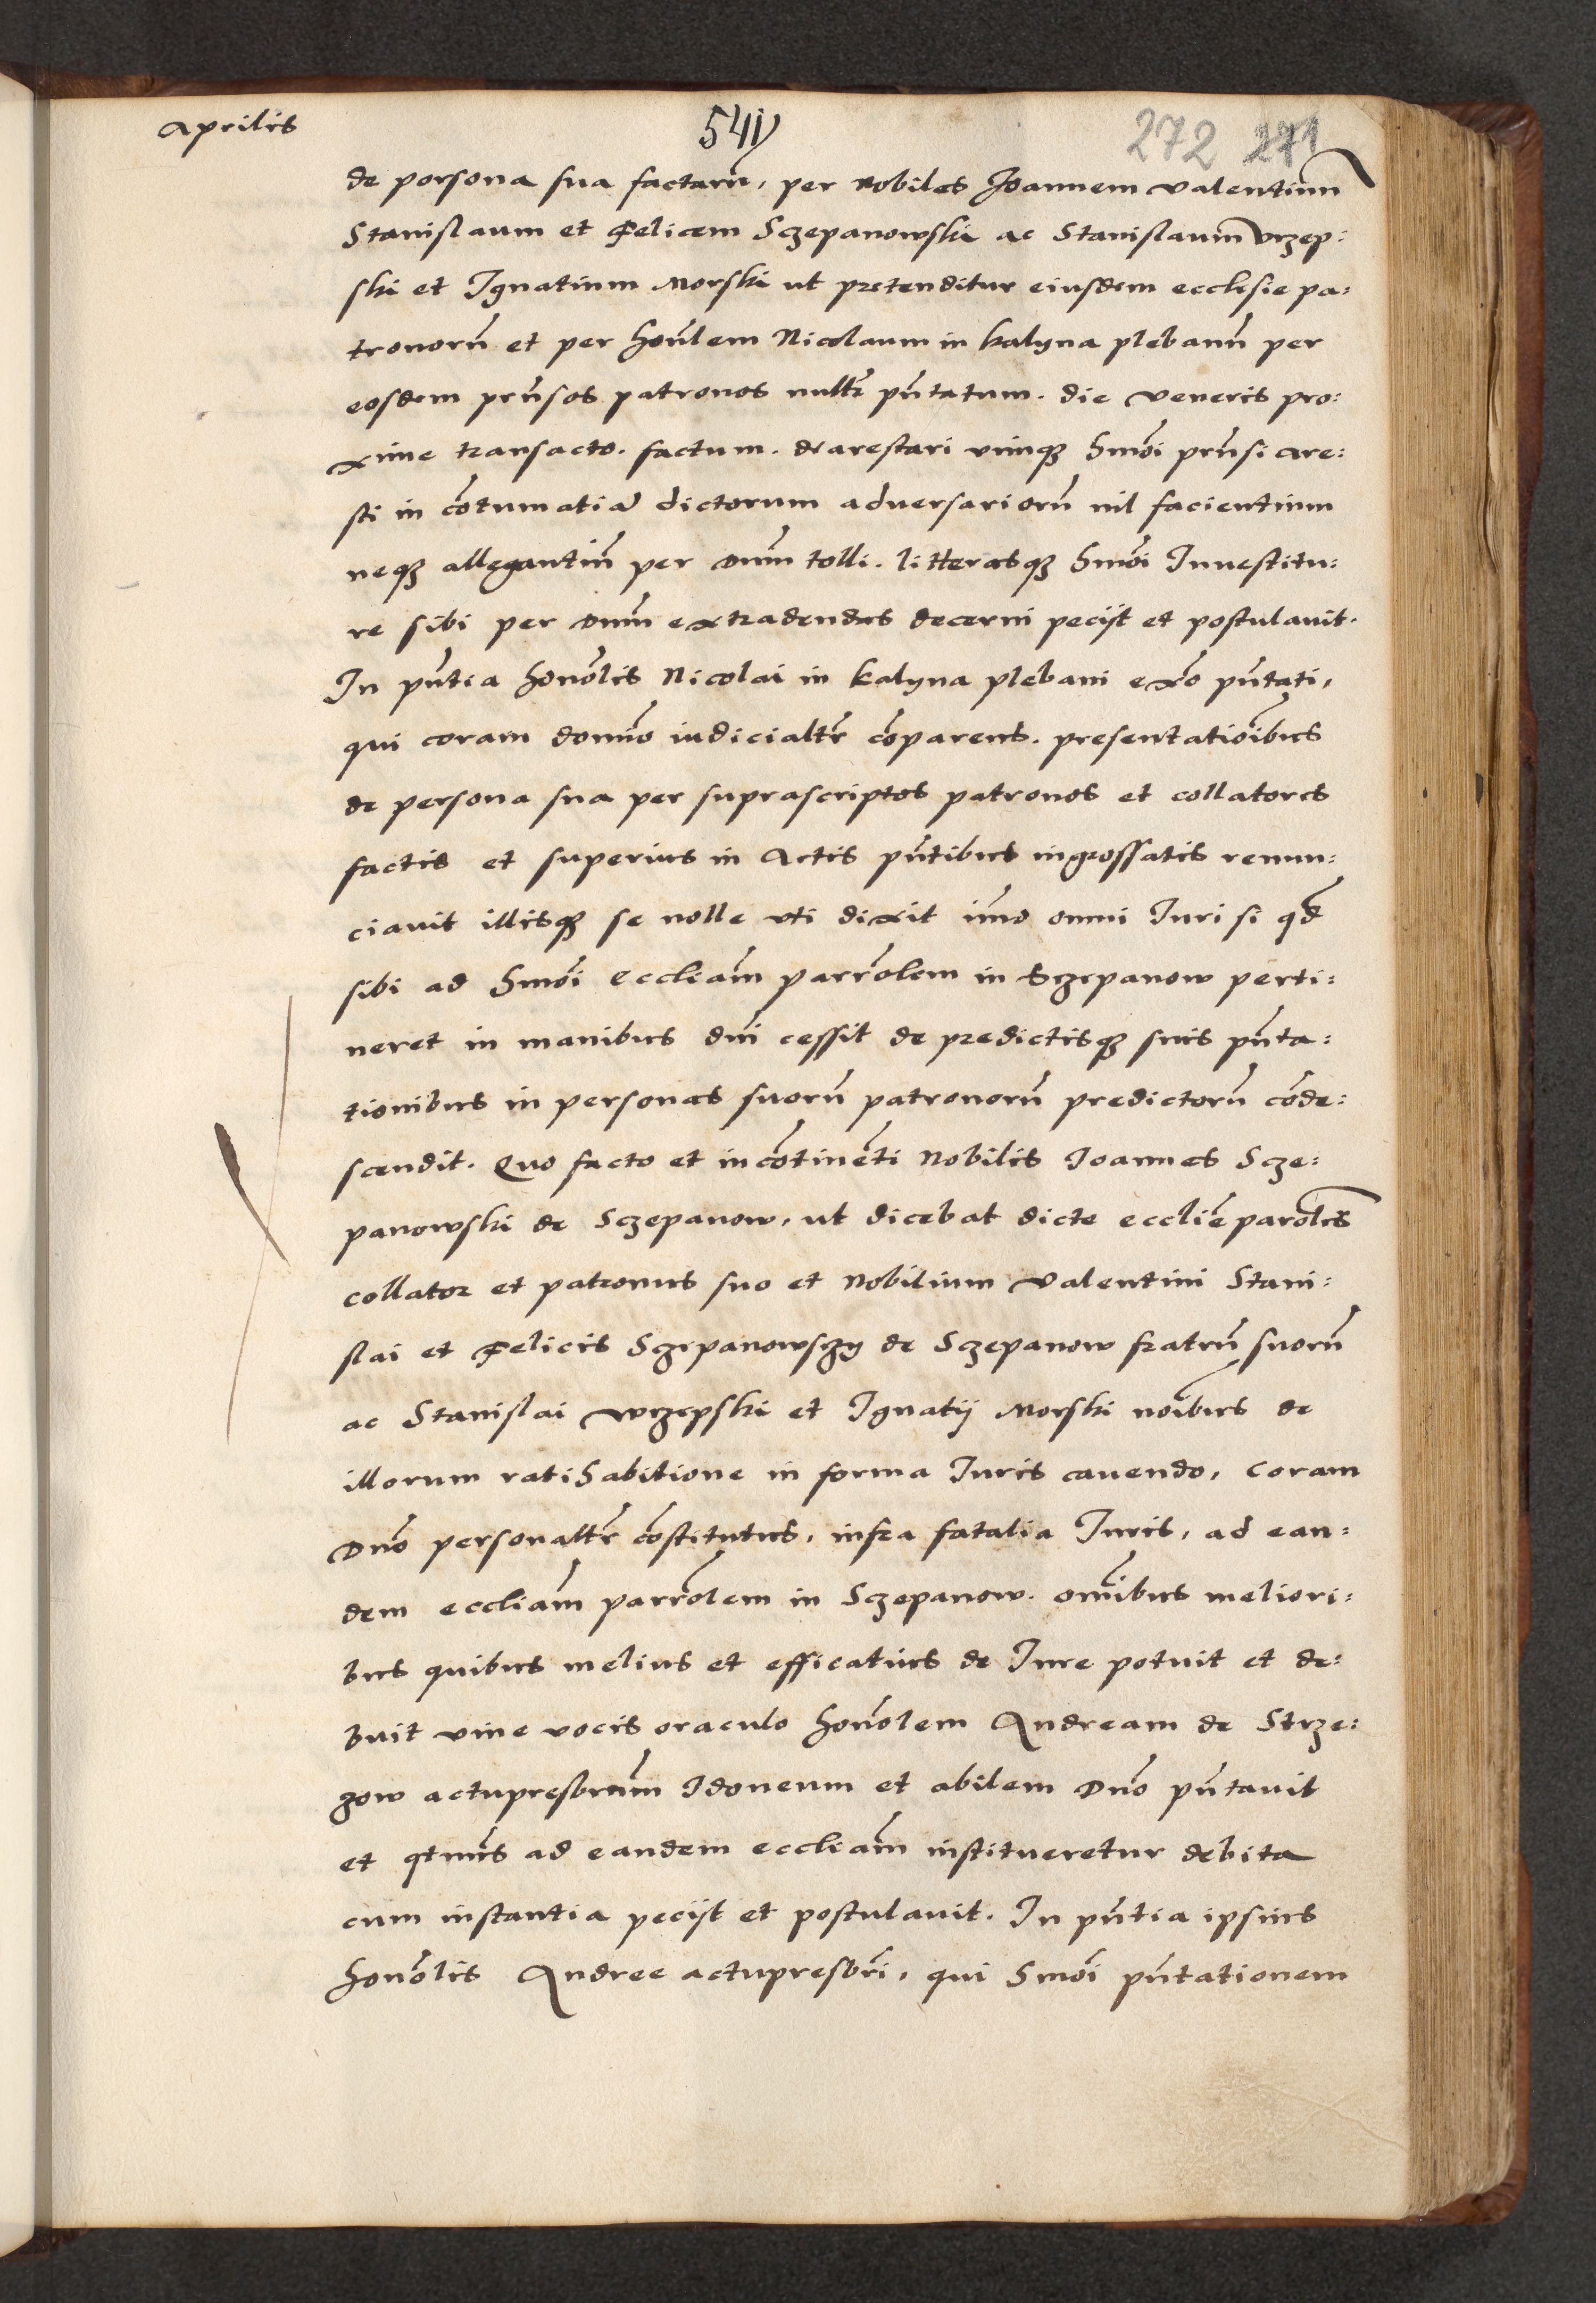 Aprilis
541
272 271
de persona sua factarũ, per Nobiles Joannem Valentinũ
Stanislaum et Felicem Sczepanowski ac Stanislaum Vrzep:
ski et Ignatium Morski ut pretenditur eiusdem ecclesie pa:
tronorũ et per honũlem Nicolaum in Kalyna plebanũ per
eosdem prẽnsos patronos nullr̃ pñtatum. die Veneris pro:
xime transacto. factum. dearestari vimqȝ hmõi prẽnsi are:
sti in cõtumatiã dictorum adversariorũ nil facientium
neqȝ allegantiũ per Dnũm tolli. litterasqȝ hmõi Investitu:
re sibi per Dnũm extradendas decerni peciit et postulavit.
In pñtia honõlis Nicolai in Kalyna plebani ex̃o pñtati,
qui coram domĩno iudicialtr̃ cõparens. presentatiõibus
de persona sua per suprascriptos patronos et collatores
factis et superius in Actis pñtibus ingrossatis renun:
ciavit illisqȝ se nolle uti dixit ĩmo omni Juri si qd̃
sibi ad hmõi eccliam̃ parrõlem in Sczepanow perti:
neret in manibus dñi cessit de predictisqȝ suis pñta:
tionibus in personas suorũ patronorũ predictorũ cõde:
scendit. Quo facto et incõtinẽti Nobilis Joannes Scze:
panowski de Sczepanow, ut dicebat dicte ecclię̃ parõlis
collator et patronus suo et Nobilium Valentini Stani:
slai et Felicis Sczepanowsczy de Sczepanow fratrũ suorũ
ac Stanislai Wrzepski et Ignatij Morski noĩbus de
illorum ratihabitione in forma Juris cavendo, coram
Dnõ personaltr̃ cõstitutus, infra fatalia Juris, ad ean:
dem eccliam̃ parrõlem in Sczepanow. omĩbus meliori:
bus quibus melius et efficatius de Jure potuit et de:
buit vive vocis oraculo honõlem Andream de Strze:
gow actupresbrũm Idoneum et abilem Dnõ pñtavit
et qtnũs ad eandem eccliam̃ institueretur debita
cum instantia peciit et postulavit. In pñtia ipsius
honõlis Andree actupresbr̃i, qui hmõi pñtationem